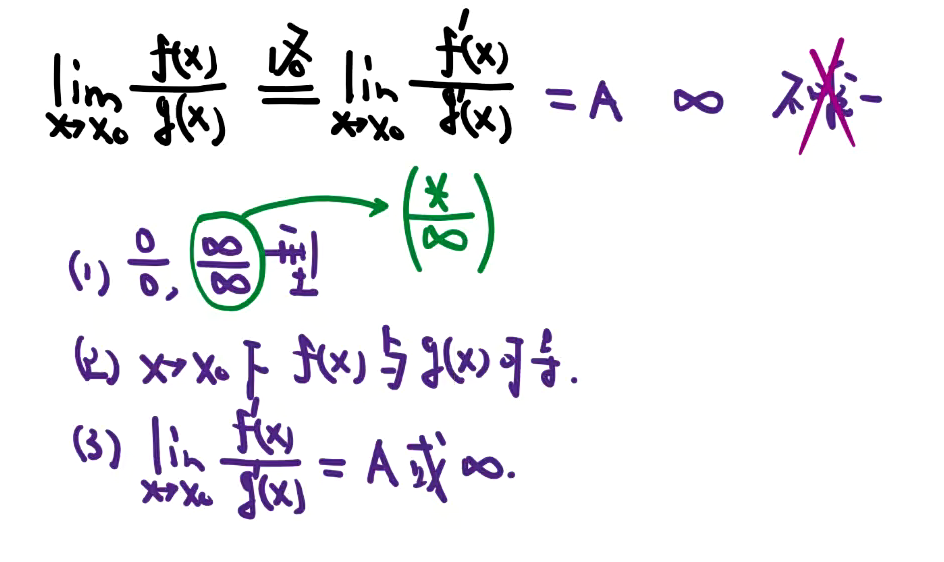 lim x→x₀ f(x)/g(x) 洛 = lim x→x₀ f'(x)/g'(x) = A ∞ 不
(*/∞)
(1) 0/0, ∞/∞ 型
(2) x→x₀ 下 f(x) 与 g(x) 可导.
(3) lim x→x₀ f'(x)/g'(x) = A 或 ∞.